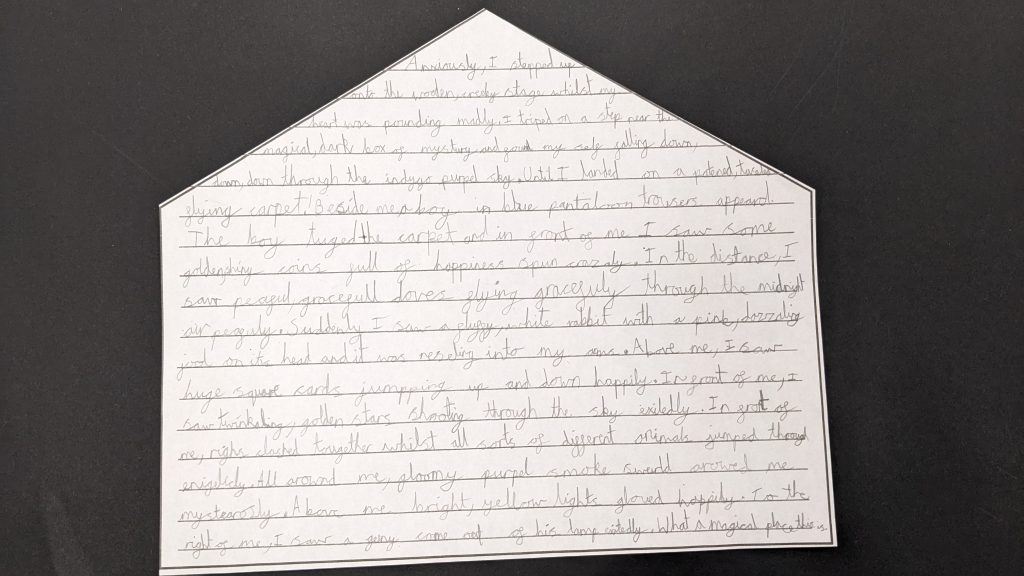 Anxiously, I stepped up
onto the wooden, creeky stage whilst my
heart was pounding madly. I triped on a step near the
magical, dark box of mystery and found my self falling down,
down, down through the indygo purpel sky. Until I landed on a patened, tuseled
flying carpet! Beside me a boy in blue pantaloon trousers appeard.
The boy tuged the carpet and in front of me I saw some
golden shiny coins full of happiness spun crazaly. In the distance, I
saw peaful, gracefull doves flying gracefuly through the midnight
air peafuly. Suddenly I saw a fluffy, white rabbit with a pink, dazzaling
on its head and it was nesseling into my arms. Above me, I saw
huge square cards jumpping up and down happily. In front of me, I
saw twinkaling, golden stars shooting through the sky exiledly. In front of
me, rings clacked tougether whilst all sorts of different animals jumped through
All around me, gloomy purpel smoke swerld arowed me
mystearosly. Above me bright, yellow lights glowed happily. To the
right of me, I saw a geny come out of his lamp What a magical place this is